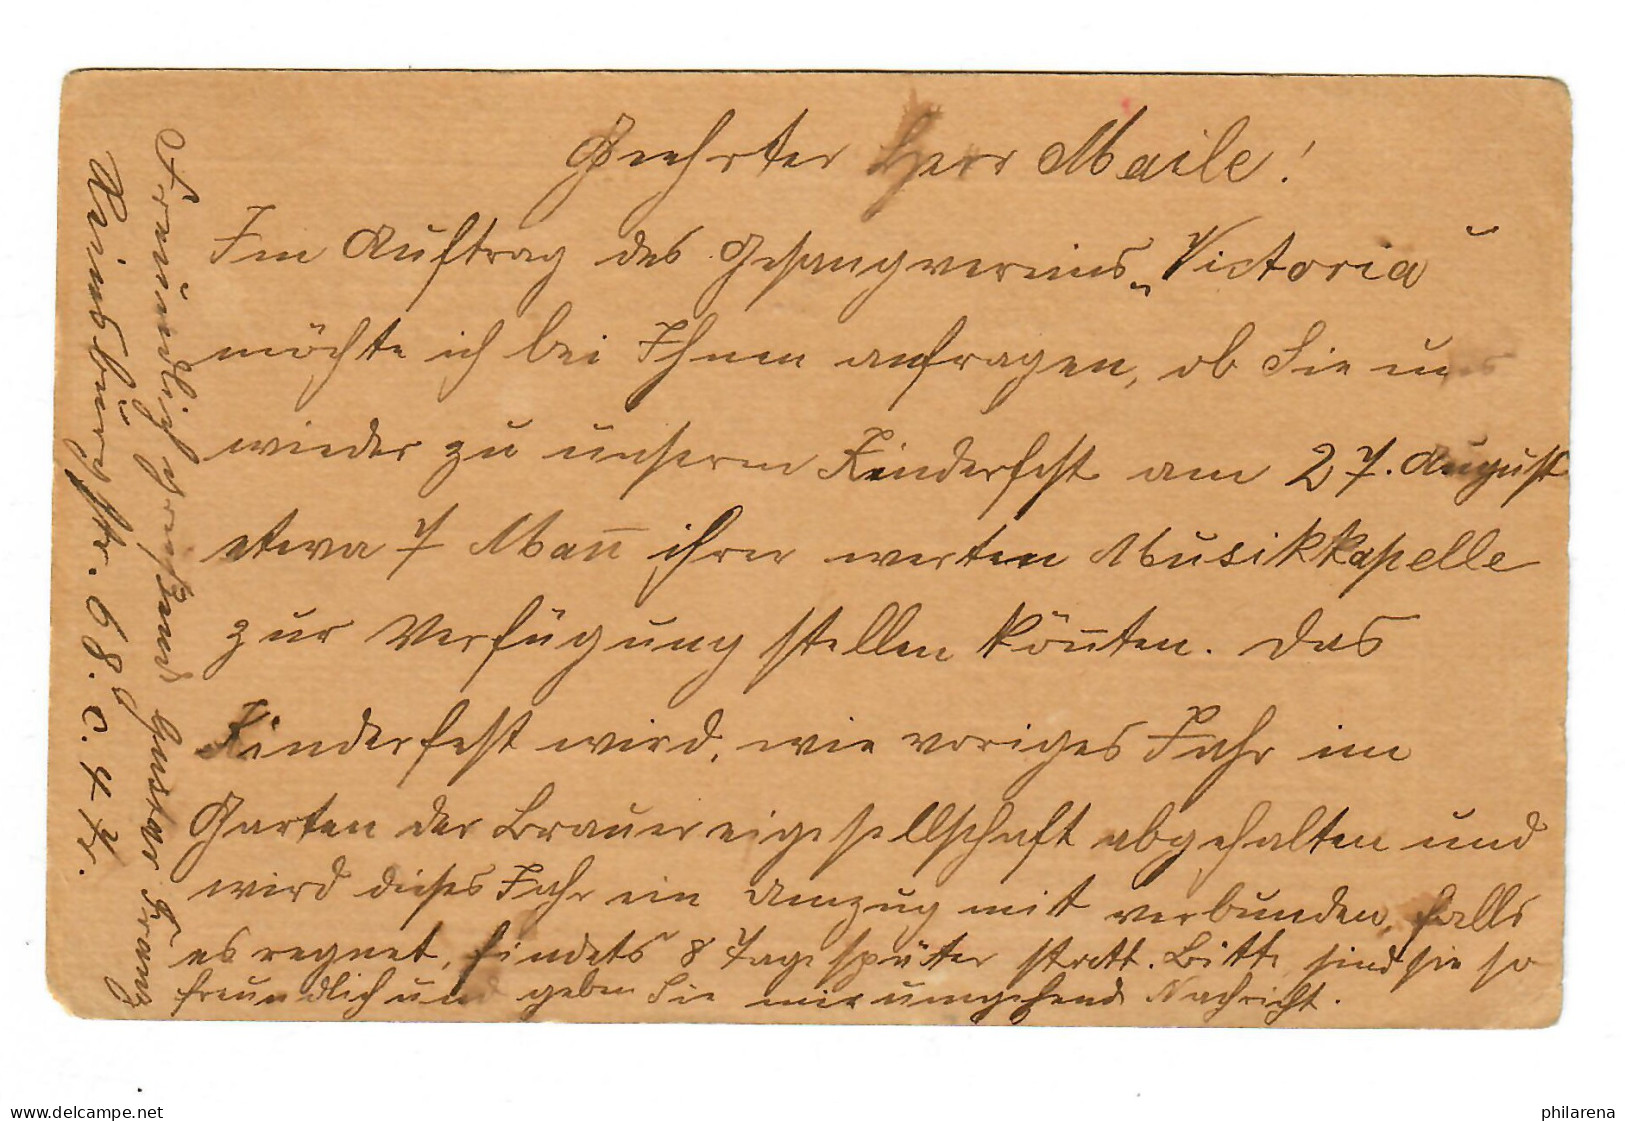 Geehrter Herr Maile!
Im Auftrag des Gesangvereins „Victoria“
möchte ich bei Ihnen anfragen, ob Sie uns
wieder zu unserem Kinderfest am 27. August
etwa 7 Mann ihrer werten Musikkapelle
zur Verfügung stellen könnten. Das
Kinderfest wird, wie voriges Jahr im
Garten der Brauereigesellschaft abgehalten und
wird dieses Jahr ein Umzug mit verbunden, falls
es regnet, findets 8 Tage später statt. Bitte sind sie so
freundlich und geben Sie mir umgehend Nachricht.
Freundlich grüßend Gustav Franz
Reinsburgstr. 68. c. 4 Tr.
delcampe.net
philarena